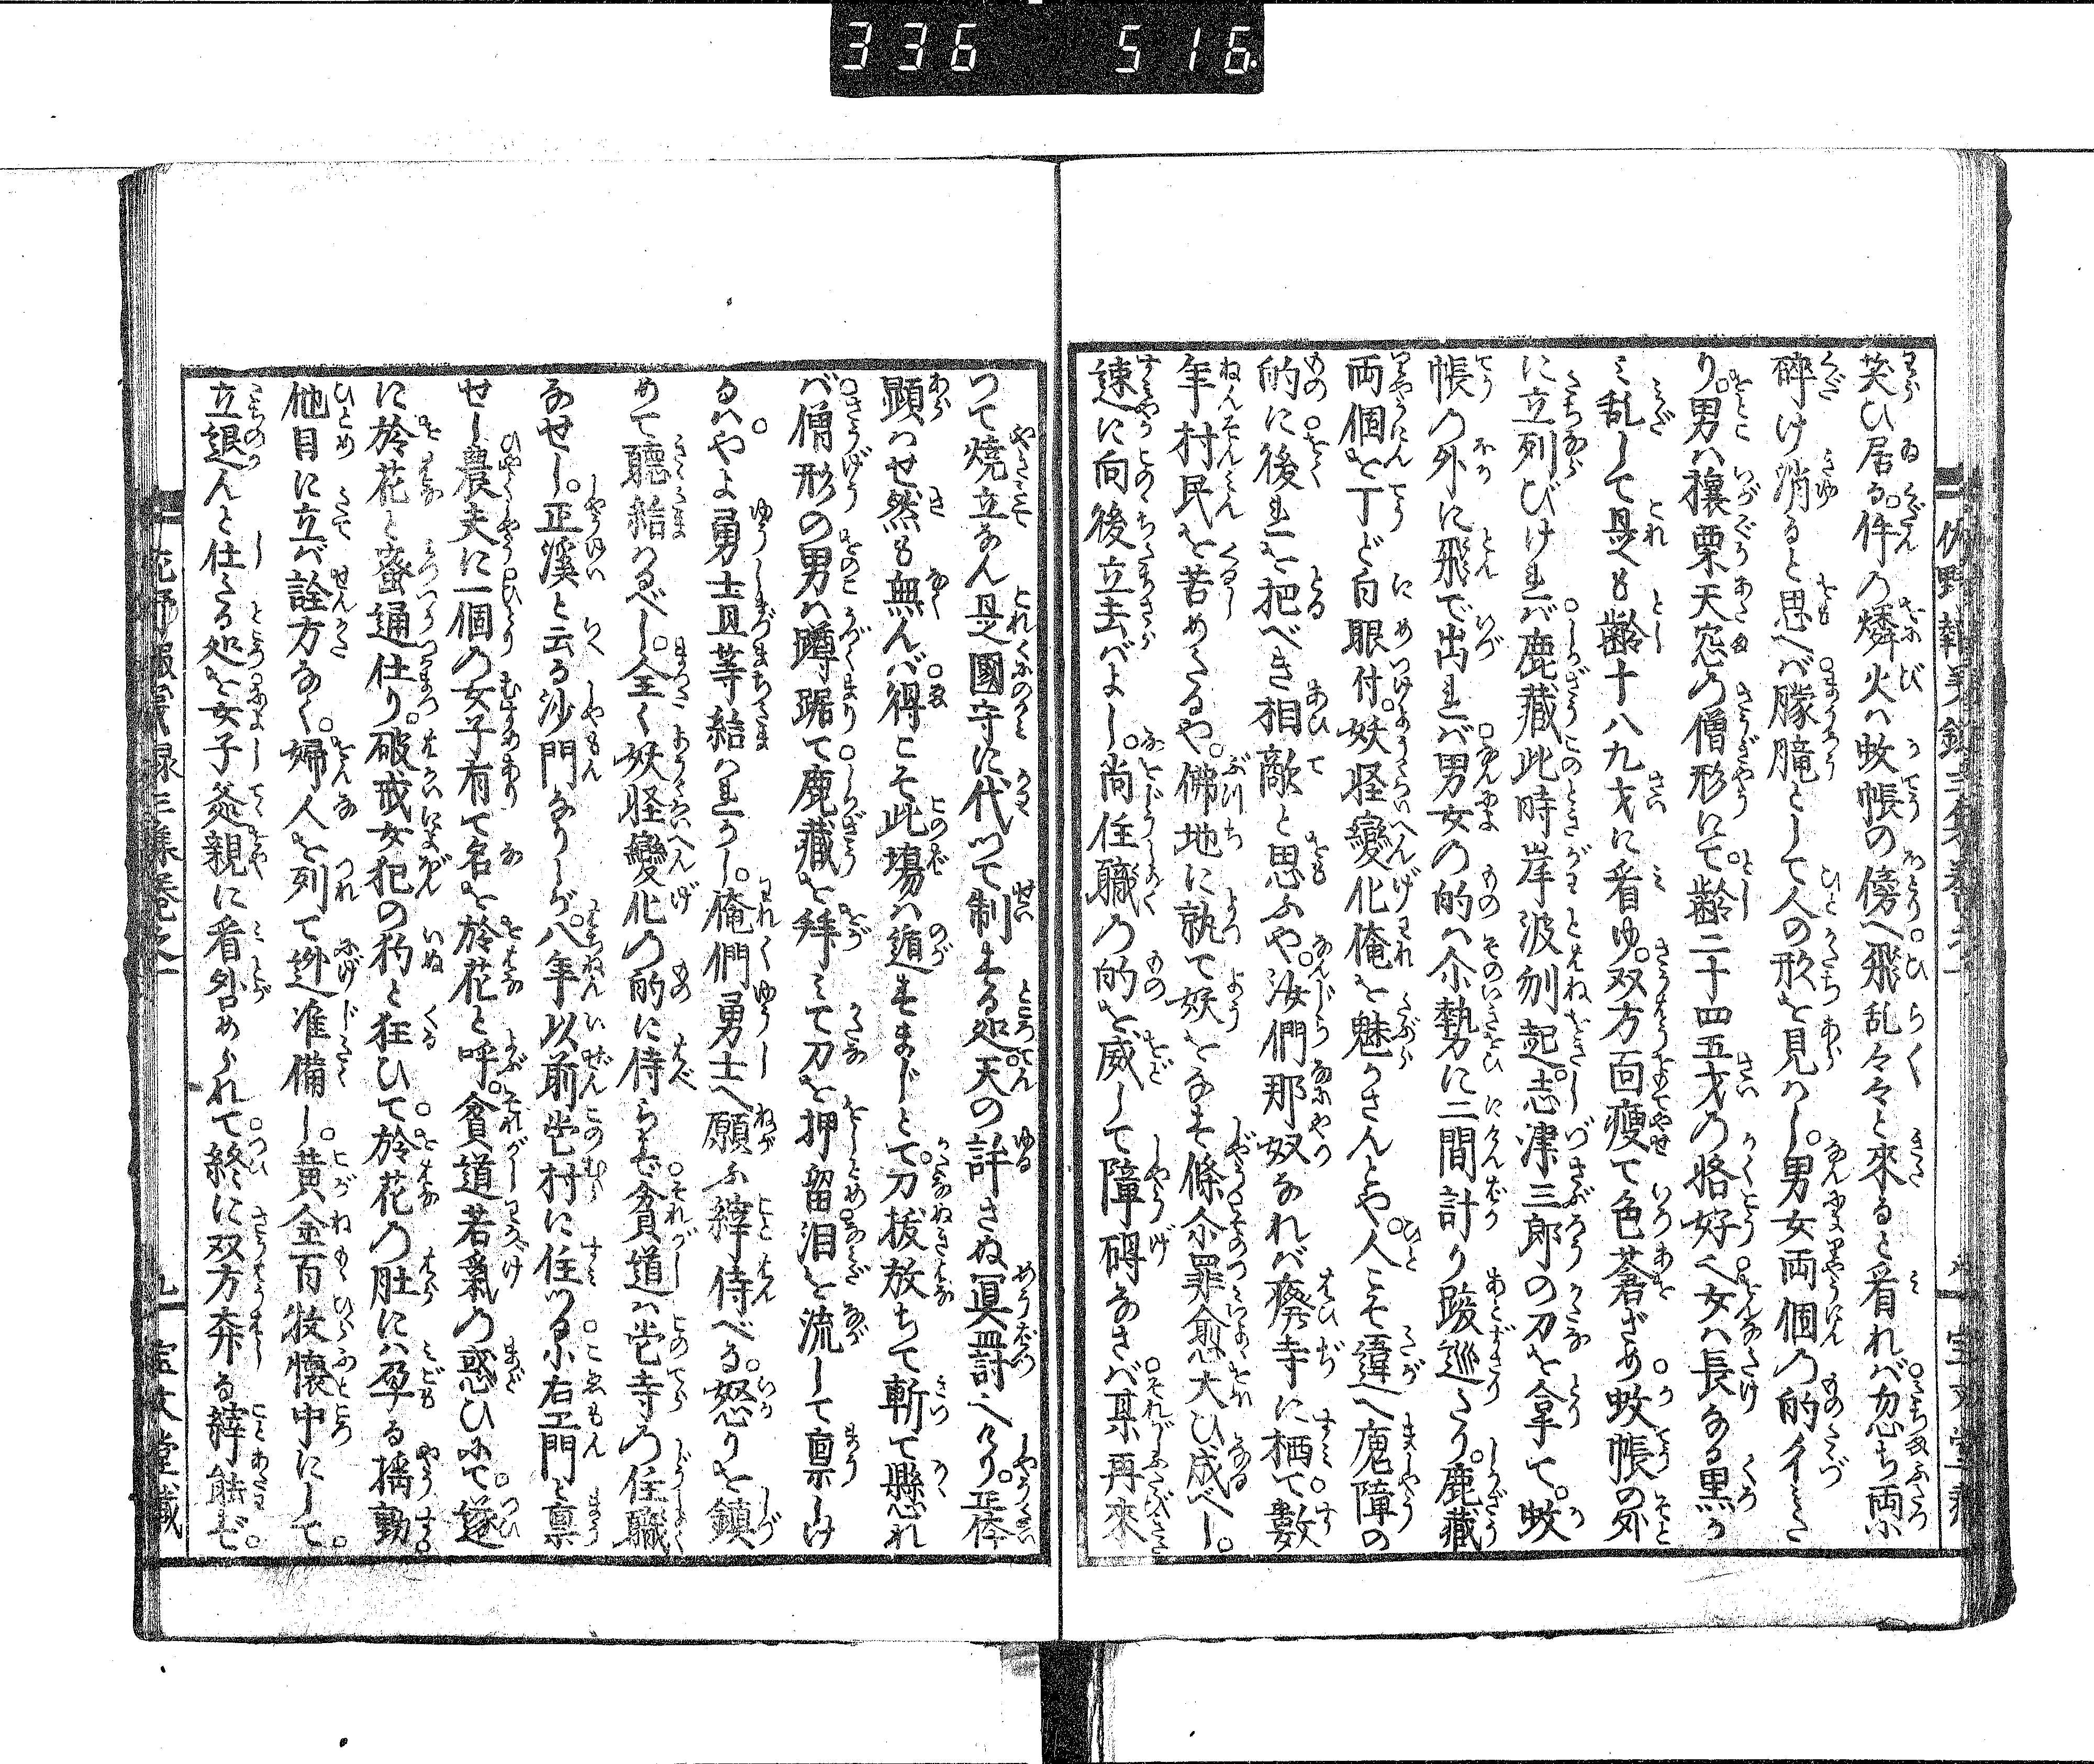 336 516
笑ひ居る。件の燐火は蚊帳の傍へ飛乱々々と來ると看れば忽ち両に
碎け消ると思へば朦朧として人の形を見はし。男女両個の的イミた
り。男は攘栗天窓の僧形にて。齢二十四五才の恪好也女は長なる黒か
ミ乱して是も齢十八九才に看ゆ。双方面痩て色蒼ざめ蚊帳の外
に立列びければ鹿藏此時岸波刎起。志津三郎の刀を拿て。蚊
帳の外に飛で出れば男女の的は尒勢に二間計り踆巡たり。鹿藏
両個を丁ど白眼付。妖怪變化俺を魅かさんとや。人こそ違へ魔障の
的に後れを把べき相敵と思ふや。汝們那奴なれば廃寺に栖て數
年村民を苦めたるや。佛地に孰て妖をなす條尒罪愈大ひ成べし。
速に向後立去ばよし。尚住職の的を威して障碍なさば某再來
つて焼立なん是國守に代つて制する処天の許さぬ冥罸也けり。正体
顕はせ然も無んば得こそ此場は遁すまじとて。刀拔放ちて斬て懸れ
ば僧形の男は蹲踞て鹿藏を拜ミて刀を押留泪を流して禀しけ
るはやよ勇士且等給はれかし。俺們勇士へ願ふ縡侍べる。怒りを鎮
めて聽給はるべし。全く妖怪變化の的に侍らず貧道は當寺の住職
なせし。正溪と云る沙門なりしが。八年以前當村に住つる小右エ門と禀
せし農夫に一個の女子有て名を於花と呼。貧道若氣の惑ひにて。遂
に於花と蜜通仕り。破戒女犯の犳と狂ひて於花の肚には孕る擣勭
他目に立ば詮方なく。婦人を列て逃准備し。黄金百枚懐中にして
立退んと仕たる処を女子爺親に看咎められて終に双方奔る縡能ず。
宝文堂藏